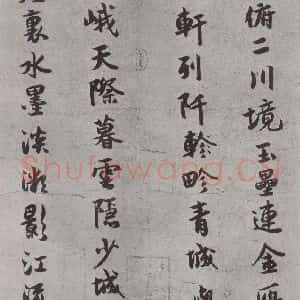 俯二川境玉壘連金
軒列阡畛青城
峨天際暮雲隱少城
裏水墨淡影江
Shufawang.Cn